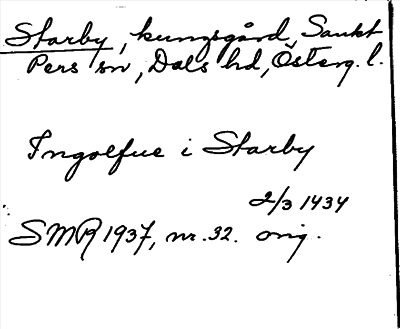 Starby, kungsgård, Sankt
Pers sn, Dals hd, Österg. l.
Ingolfue i Starby
2/3 1434
SMR 1937, nr. 32. orig.